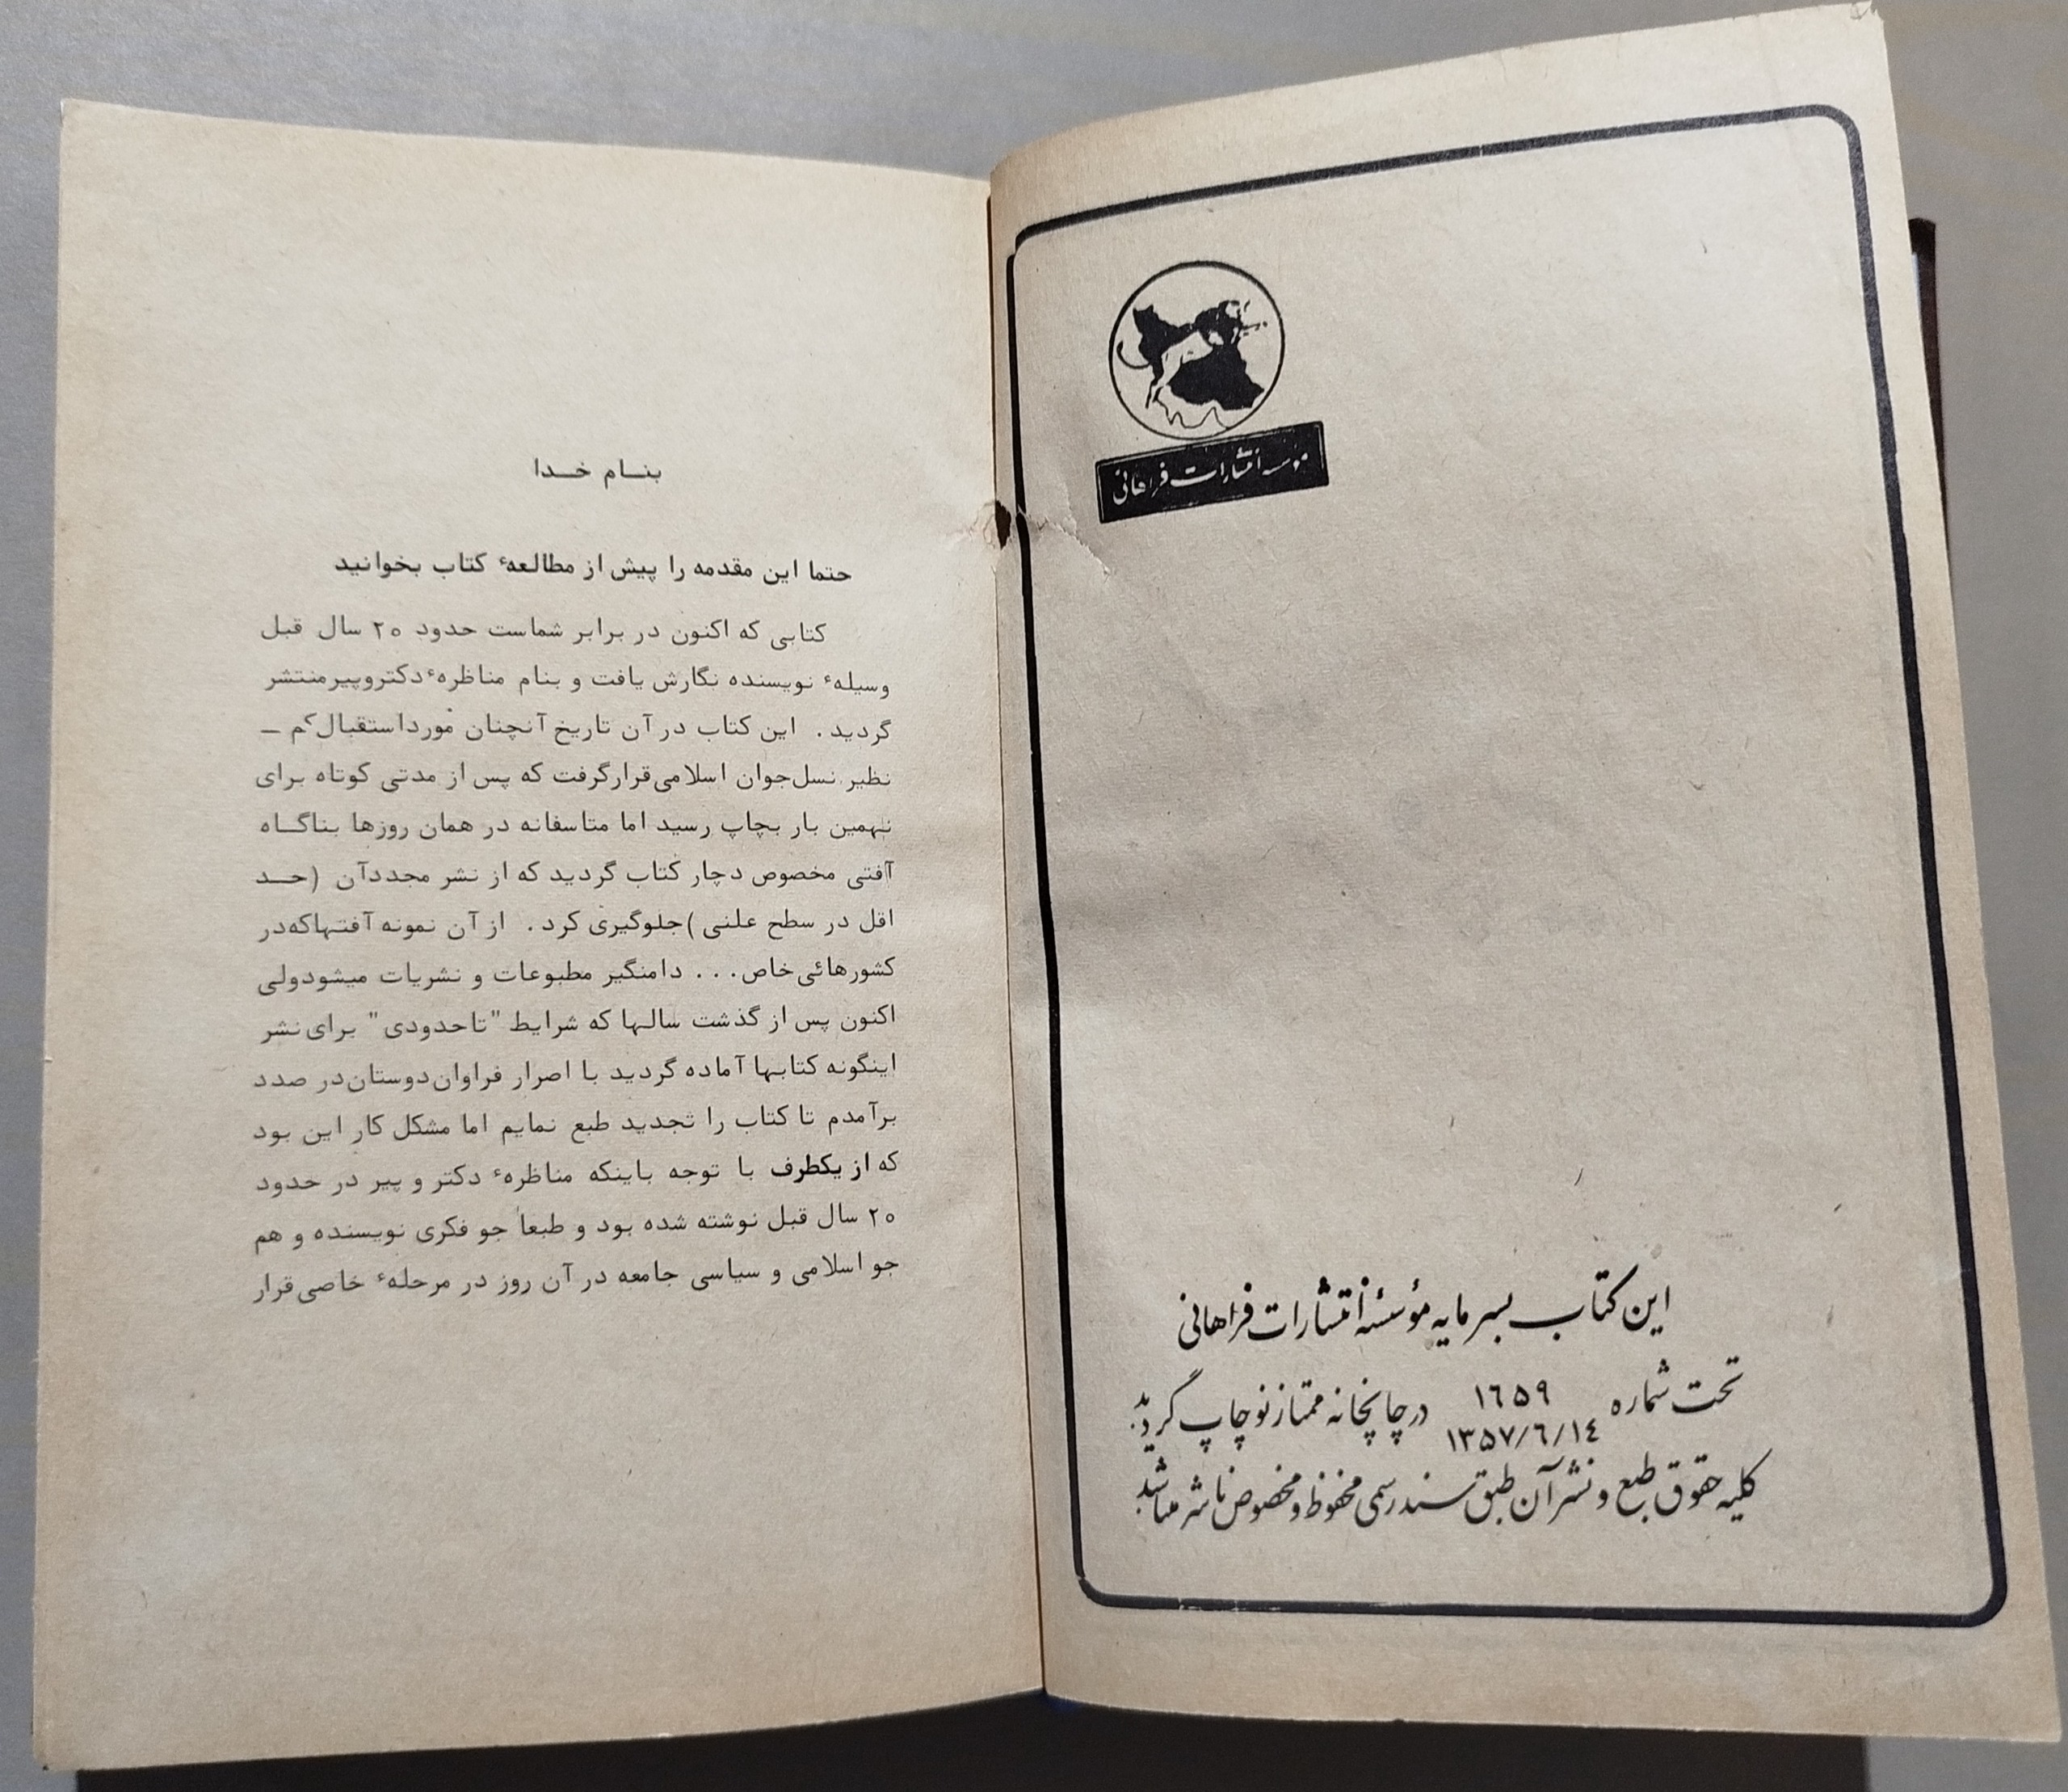 موسسه انتشارات فراهانی
این کتاب بسرمایه مؤسسهٔ انتشارات فراهانی
تحت شماره ۱۶۵۹ درچاپخانه ممتاز نو چاپ گردید
۱۳۵۷/۶/۱۴
کلیه حقوق طبع و نشر آن طبق سند رسمی محفوظ و مخصوص ناشر میباشد
بنـام خـدا
حتما این مقدمه را پیش از مطالعهٔ کتاب بخوانید
کتابی که اکنون در برابر شماست حدود ۲۰ سال قبل
وسیلهٔ نویسنده نگارش یافت و بنام مناظرهٔ دکتر و پیر منتشر
گردید. این کتاب در آن تاریخ آنچنان مورد استقبال کم ـ
نظیر نسل جوان اسلامی قرار گرفت که پس از مدتی کوتاه برای
نهمین بار بچاپ رسید اما متاسفانه در همان روزها بناگـاه
آفتی مخصوص دچار کتاب گردید که از نشر مجدد آن (حـد
اقل در سطح علنی) جلوگیری کرد. از آن نمونه آفتها که در
کشورهائی خاص... دامنگیر مطبوعات و نشریات میشود ولی
اکنون پس از گذشت سالها که شرایط "تا حدودی" برای نشر
اینگونه کتابها آماده گردید با اصرار فراوان دوستان در صدد
برآمدم تا کتاب را تجدید طبع نمایم اما مشکل کار این بود
که از یکطرف با توجه باینکه مناظرهٔ دکتر و پیر در حدود
۲۰ سال قبل نوشته شده بود و طبعا جو فکری نویسنده و هم
جو اسلامی و سیاسی جامعه در آن روز در مرحلهٔ خاصی قرار